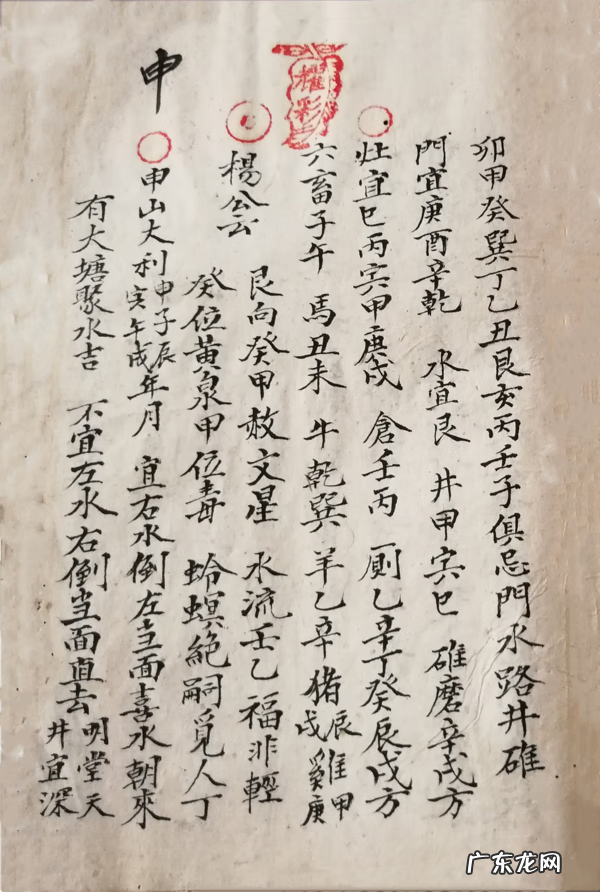 卯甲癸巽丁乙丑艮亥丙壬子俱忌門水路井碓
門宜庚酉辛乾 水宜艮 井甲寅巳 碓磨辛戌方
灶宜巳丙寅甲庚戌 倉壬丙 厠乙辛丁癸辰戌方
六畜子午 馬丑未 牛乾巽 羊乙辛 猪辰戌 雞甲庚
楊公云
艮向癸甲赦文星 水流壬乙福非輕
癸位黄泉甲位毒 蛉螟絶嗣覓人丁
申山大利申子辰寅午戌年月 宜右水倒左当面喜水朝來
有大塘聚水吉 不宜左水右倒当面直去 明堂天井宜深
申
耀彩
广东龙网